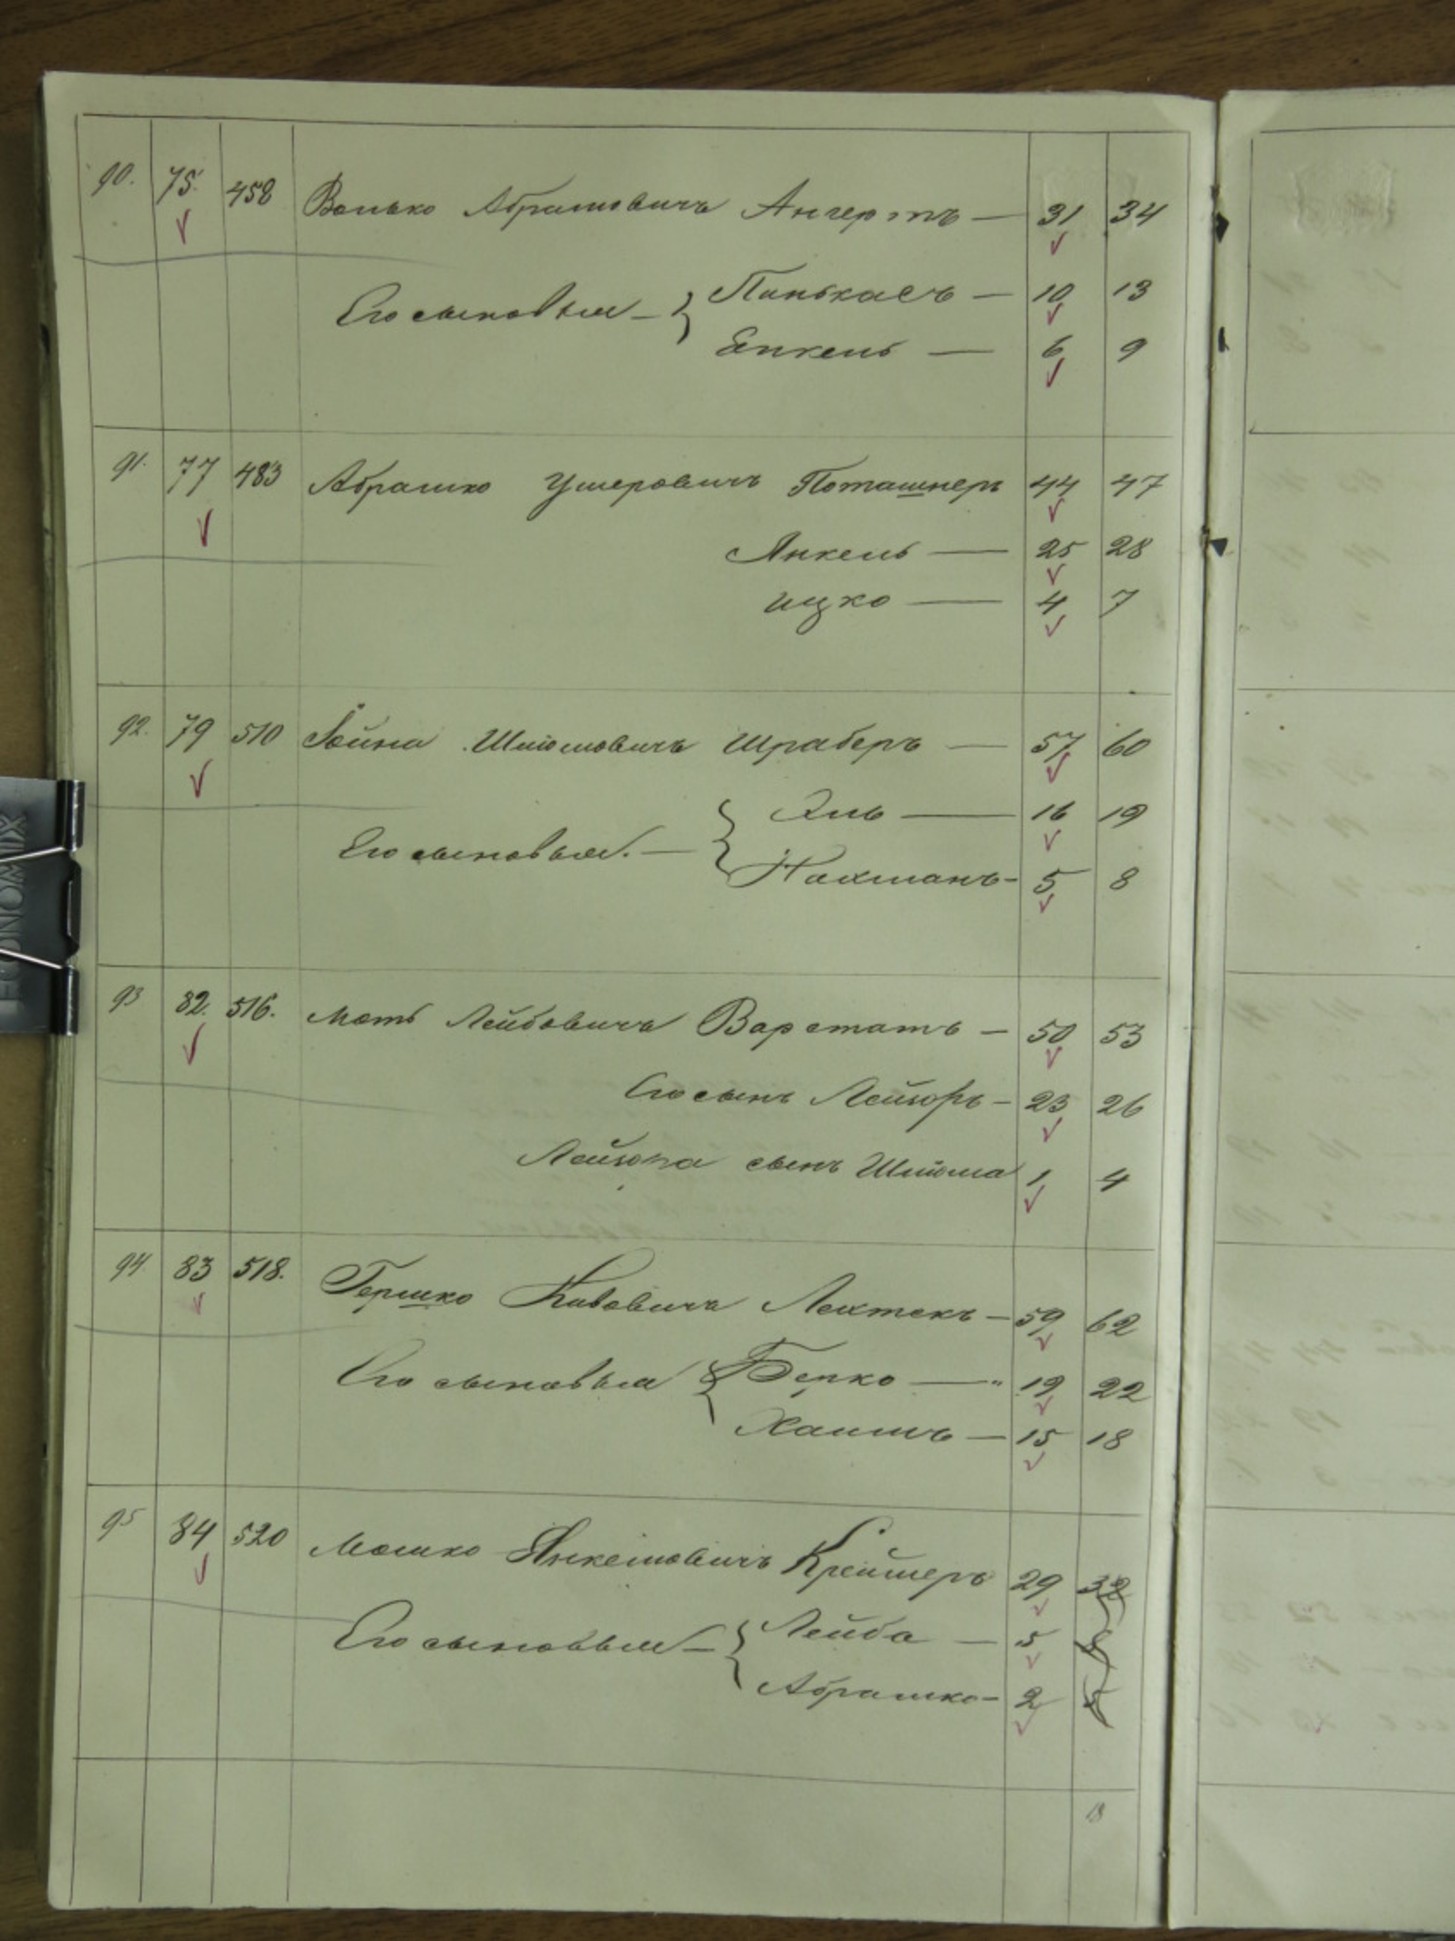 90. 75. 458 Волько Абрамовичъ Ангертъ — 31 34
Его сыновья — Пинькасъ — 10 13
Енкель — 6 9
91. 77 483 Абрашко Ушеровичъ Поташнеръ 44 47
Янкель — 25 28
Ицко — 4 7
92. 79 510 Іойна Шліомовичъ Шраберъ — 57 60
Его сыновья. — Эль — 16 19
Нахманъ - 5 8
93 82. 516. Мотъ Лейбовичъ Варстатъ — 50 53
Его сынъ Лейзоръ — 23 26
Лейзора сынъ Шліома 1 4
94 83 518. Гершко Кивовичъ Лехтекъ — 59 62
Его сыновья Берко — 19 22
Хаимъ — 15 18
95 84 520 Мошко Янкелиовичъ Креймеръ 29 32
Его сыновья — Лейба — 5 8
Абрашко - 2 5
ECONOMIX